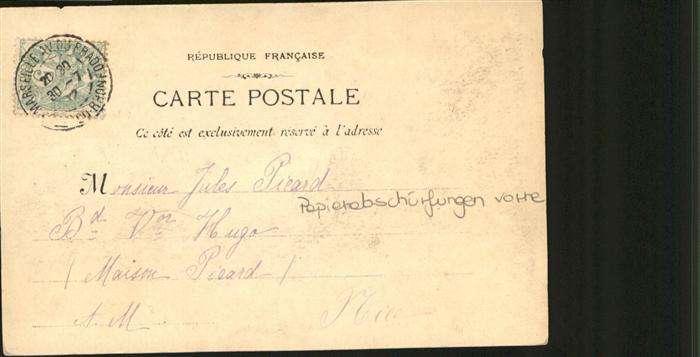 MARSEILLE AV. DU PRADO
BCHES DU RHONE
RÉPUBLIQUE FRANÇAISE
CARTE POSTALE
Ce côté est exclusivement reservé à l'adresse
Monsieur Jules Picard
Papierabschürfungen vorne
Bd Vor Hugo
(Maison Picard)
A. M. Nice